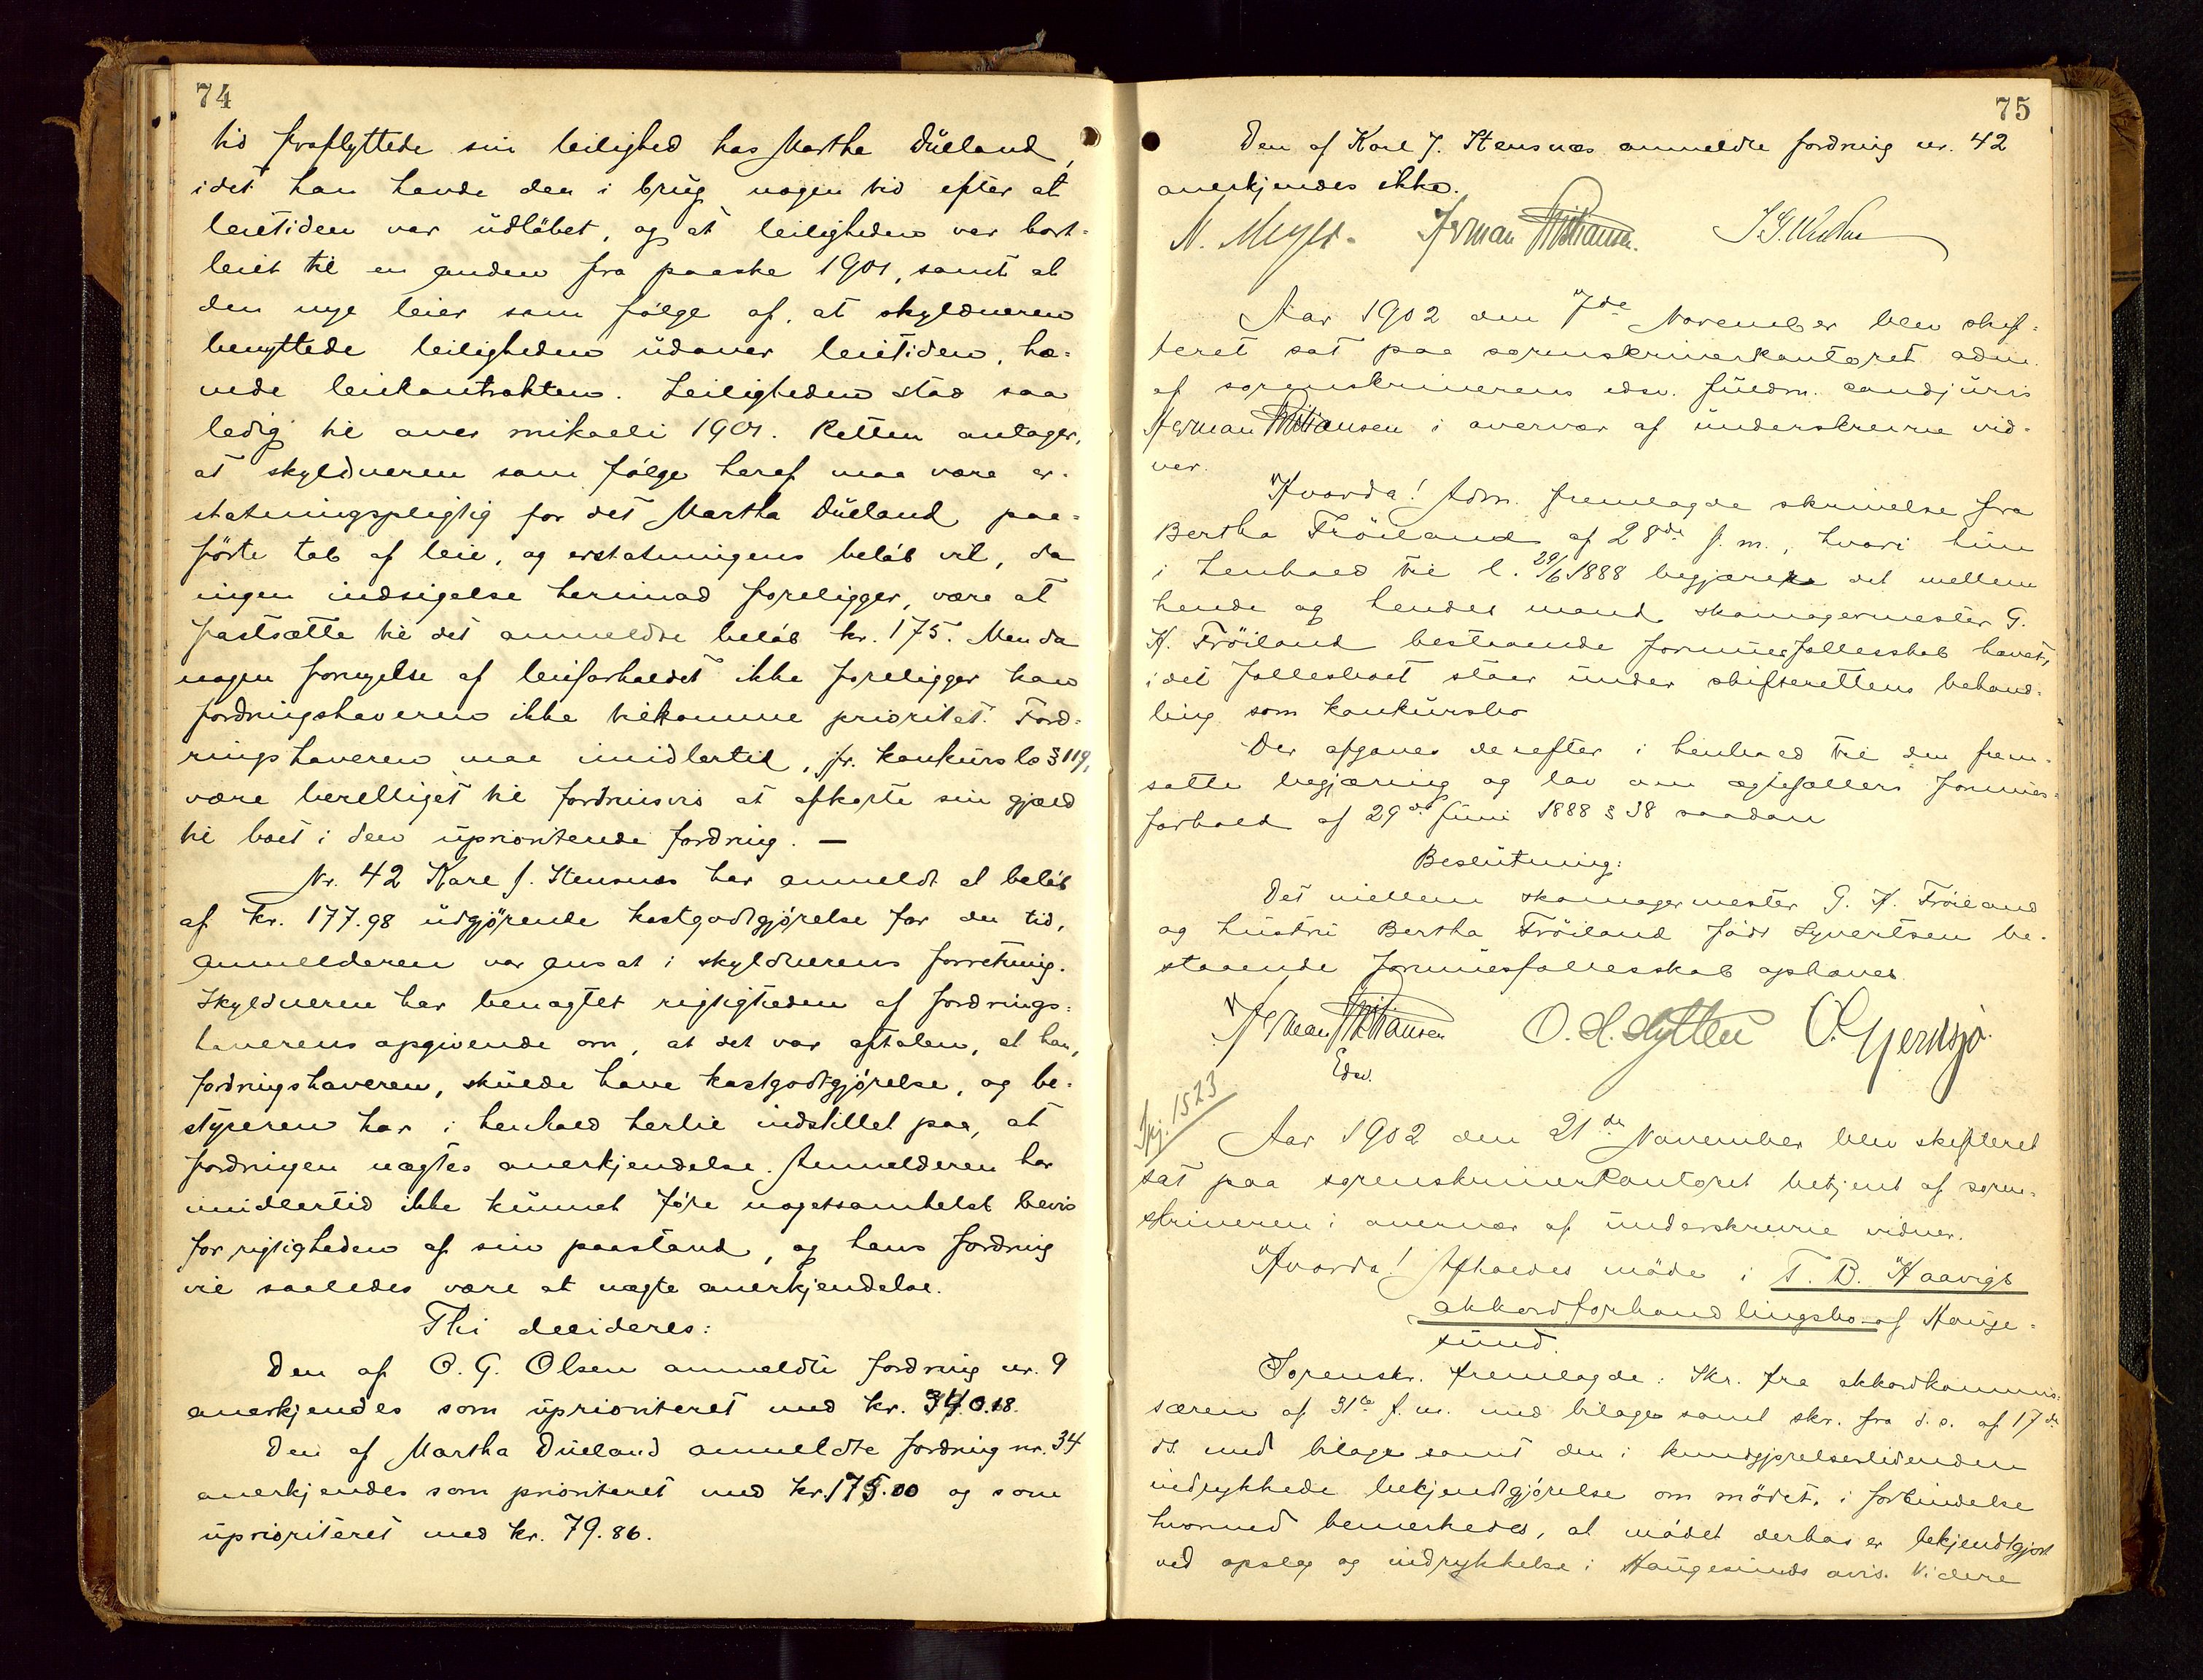 74
tid fraflyttede sin leilighed hos Martha Düeland,
idet han havde den i brug nogen tid efter at
leietiden var üdløbet, og at leiligheden var bort-
leiet til en anden fra paaske 1901, samt at
den nye leier som følge af, at skyldneren
benyttede leiligheden üdover leietiden, hæ-
vede leiekontrakten. Leiligheden stod saa
ledig til over mikaeli 1901. Retten antager,
at skyldneren som følge heraf maa være er-
statningspligtig for det Martha Düeland paa-
førte tab af leie, og erstatningens beløb vil, da
ingen indsigelse herimod foreligger, være at
fastsætte til det anmeldte beløb kr. 175. Men da
nogen fornyelse af leieforholdet ikke foreligger kan
fordringshaveren ikke tilkomme prioritet. Ford-
ringshaveren maa imidlertid, jfr. konkürslo § 119,
være berettiget til fordrinsvis at afkorte sin gjæld
til boet i den üprioriterede fordring. —
Nr. 42 Karl J. Stensnæs har anmeldt et beløb
af kr. 177.98 üdgjørende kostgodtgjørelse for den tid,
anmelderen var ansat i skyldnerens forretning.
Skyldneren har benægtet rigtigheden af fordrings-
haverens opgivende om, at det var aftalen, at han,
fordringshaveren, skülde have kostgodtgjørelse, og be-
styreren har i henhold hertil indstillet paa, at
fordringen nægtes anerkjendelse. Anmelderen har
imidlertid ikke künnet føre nogetsomhelst bevis
for rigtigheden af sin paastand, og hans fordring
vil saaledes være at nægte anerkjendelse.
Thi decideres:
Den af O. G. Olsen anmeldte fordring nr. 9
anerkjendes som üprioriteret med kr. 340.18.
Den af Martha Düeland anmeldte fordring nr. 34
anerkjendes som prioriteret med kr. 175.00 og som
üprioriteret med kr. 79.86.
75
Den af Karl J. Stensnæs anmeldte fordring nr. 42
anerkjendes ikke.
N. Meyer. Herman Christiansen.
Aar 1902 den 7de November blev skif-
teret sat paa sorenskriverkontoret adm.
af sorenskriverens edsv. füldm. cand jüris
Herman Christiansen i overvær af ünderskrevne vid-
ner.
Hvorda! Adm. fremlagde skrivelse fra
Bertha Fröiland af 28de f. m., hvori hün
i henhold til l. 29/6 1888 begjærer det mellem
hende og hendes mand skomagermester G.
H. Fröiland bestaaende formüesfællesskab hævet,
idet fællesboet staar ünder skifterettens behand-
ling som konkürsbo
Der afgaves derefter i henhold til den frem-
satte begjæring og lov om ægtefællers formües-
forhold af 29de Jüni 1888 § 38 saadan
Beslütning:
Det mellem skomagermester G. H. Fröiland
og hüstrü Bertha Fröiland född Syvertsen be-
staaende formüesfællesskab ophæves.
Herman Christiansen O. H. Gjernsjø.
Edsv.
Spj. 1523
Aar 1902 den 21de November blev skifteret
sat paa sorenskriverkontoret betjent af soren-
skriveren i overvær af ünderskrevne vidner.
Hvorda! Afholdes møde i T. B. Haavigs
akkordforhandlingsbo af Hauge-
sund.
Sorenskr. fremlagde: Skr. fra akkordkommis-
særen af 31te f. m. med bilage samt skr. fra d. s. af 17de
ds. med bilage samt den i kundgjørelsestidenden
indrykkede bekjendtgjørelse om mødet, i forbindelse
hvormed bemerkedes, at mødet derhos er bekjendtgjort
ved opslag og indrykkelse i Haugesunds avis. Videre